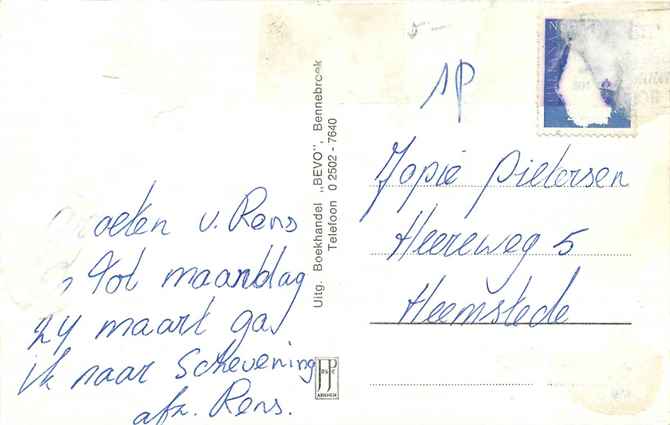 oeten v. Rens
Tot maandag
24 maart ga
ik naar Schevening
afz. Rens.
Uitg. Boekhandel „BEVO”, Bennebroek
Telefoon 0 2502 - 7640
1P
Jopie Pietersen
Heereweg 5
Heemstede